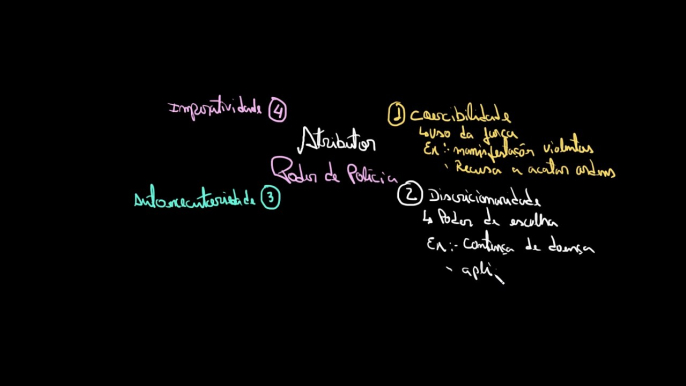 Imperatividade 4
Atributos
Poder de Polícia
Autoexecutoriedade 3
1 Coercibilidade
↳ uso da força
Ex: · manifestações violentas
· Recusa a acatar ordens
2 Discricionariedade
↳ Poder de escolha
Ex: · de doença
· apli